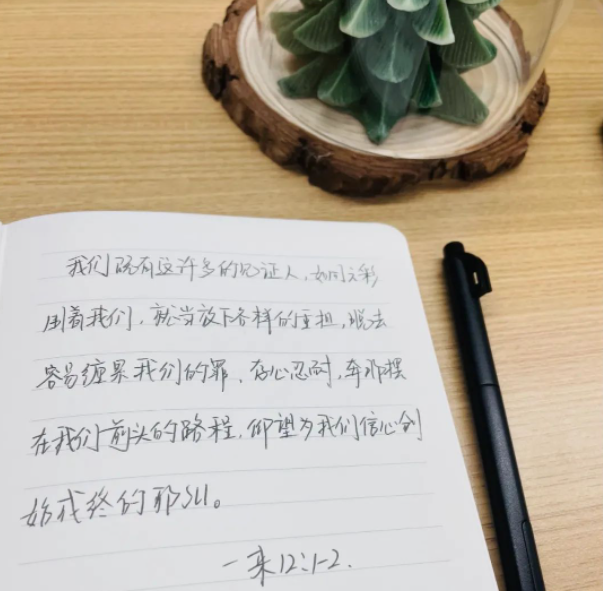 我们既有这许多的见证人，如同云彩
围着我们，就当放下各样的重担，脱去
容易缠累我们的罪，存心忍耐，奔那摆
在我们前头的路程，仰望为我们信心创
始成终的耶SU。
一来12:1-2.